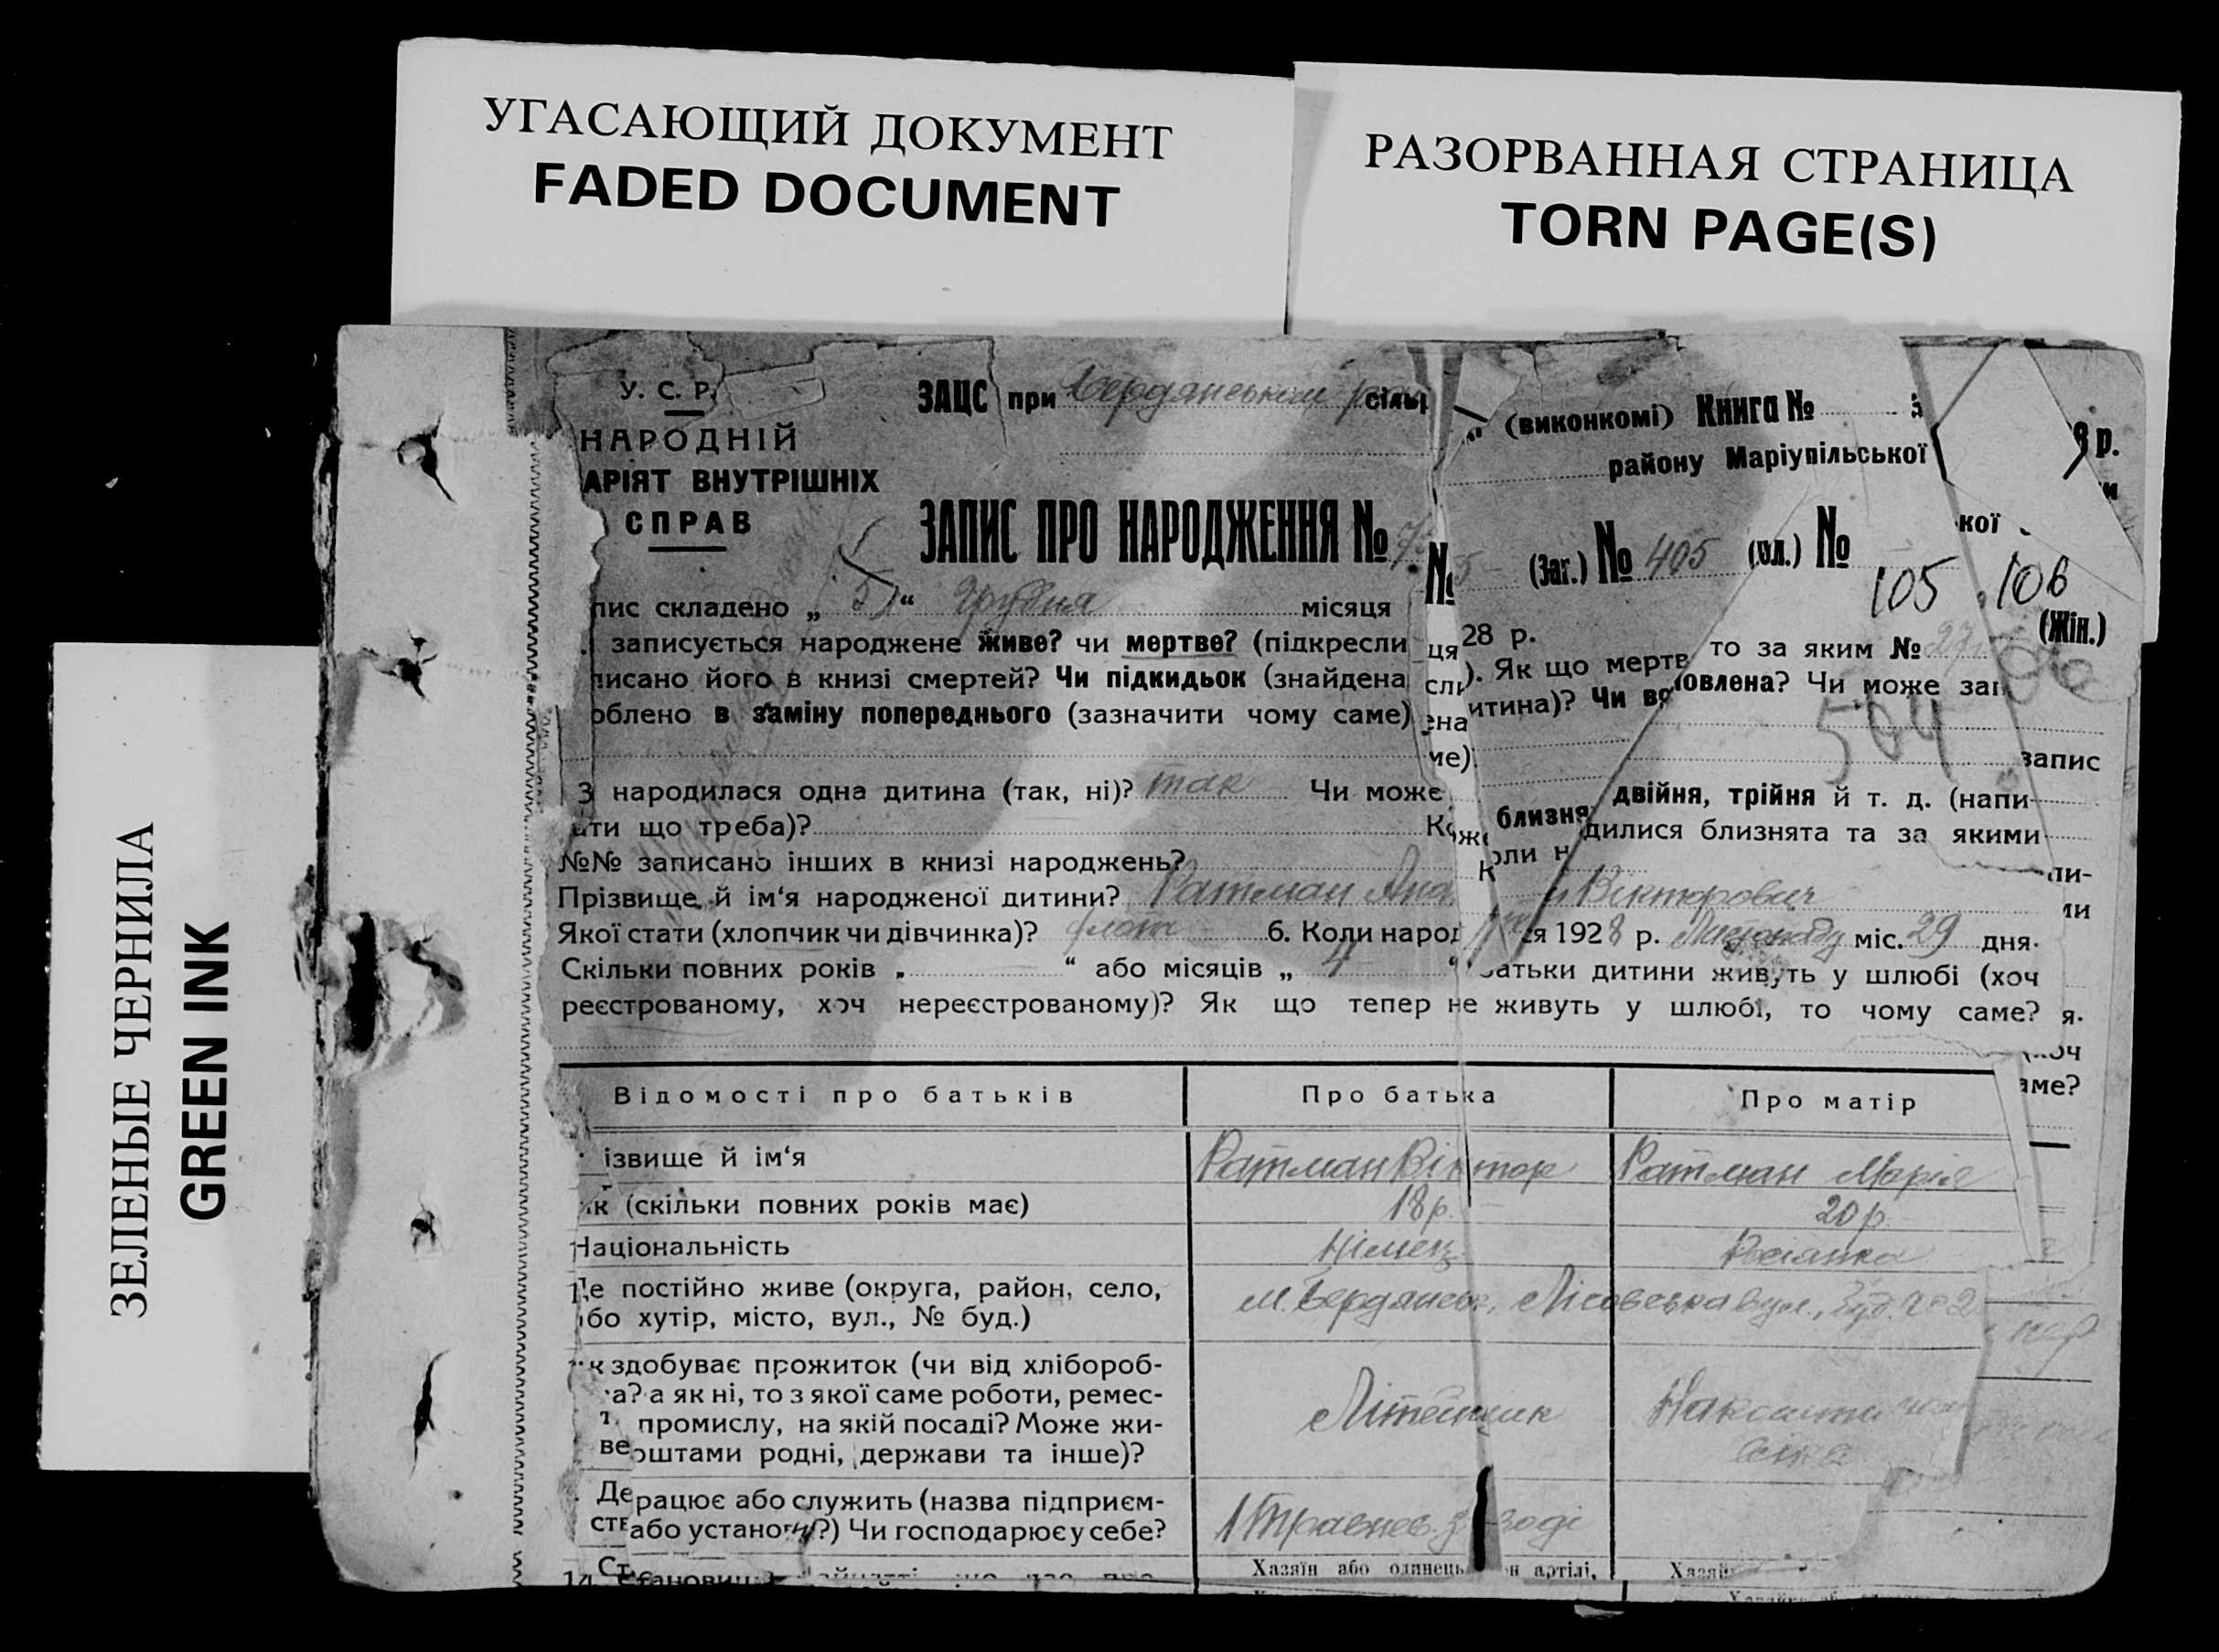 УГАСАЮЩИЙ ДОКУМЕНТ
FADED DOCUMENT
РАЗОРВАННАЯ СТРАНИЦА
TORN PAGE(S)
ЗЕЛЕНЫЕ ЧЕРНИЛА
GREEN INK
У. С. Р.
НАРОДНІЙ
АРІЯТ ВНУТРІШНІХ
СПРАВ
ЗАЦС при Бердянськім сільр
(виконкомі) Книга №
8 р.
району Маріупільської
ЗАПИС ПРО НАРОДЖЕННЯ № (Заг.) № 405 (Чол.) №
кої
105 106
(Жін.)
пис складено „ 5 “ грудня місяця
28 р.
записується народжене живе? чи мертве? (підкресли ). Як що мертв то за яким № 27
писано його в книзі смертей? Чи підкидьок (знайдена итина)? Чи в овлена? Чи може за
облено в заміну попереднього (зазначити чому саме)
564
запис
З народилася одна дитина (так, ні)? так Чи може близня двійня, трійня й т. д. (напи-
ати що треба)? оли н дилися близнята та за якими
№№ записано інших в книзі народжень?
Прізвище й ім‘я народженої дитини? Ратман Ана Вікторович
Якої стати (хлопчик чи дівчинка)? 6. Коли народ я 1928 р. Листопаду міс. 29 дня.
Скільки повних років „ “ або місяців „ “ батьки дитини живуть у шлюбі (хоч
реєстрованому, хоч нереєстрованому)? Як що тепер не живуть у шлюбі, то чому саме?
аме?
Відомості про батьків Про батька Про матір
ізвище й ім‘я Ратман Віктор Ратман Марія
ік (скільки повних років має) 18 р. 20 р.
Національність Німець Росіянка
Де постійно живе (округа, район, село,
або хутір, місто, вул., № буд.) м. Бердянськ, Лісовська вул., буд. № 2
к здобуває прожиток (чи від хлібороб-
а? а як ні, то з якої саме роботи, ремес-
промислу, на якій посаді? Може жи-
ве оштами родні, держави та інше)?
Літейщик
На
Де рацює або служить (назва підприєм-
ств або установи?) Чи господарює у себе?
1 Травнев. з воді
14. Становищ
Хазяїн або одинець н артілі,
Хазяй